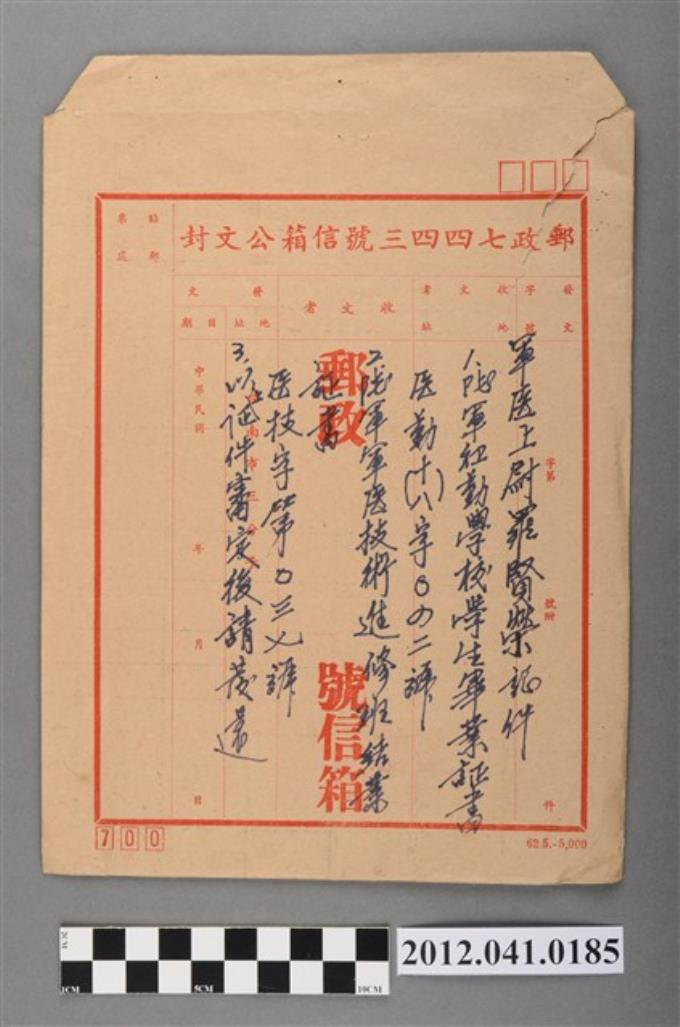 郵政七四四三號信箱公文封
貼郵
票處
發文
字號
收文者
地址
收文者
發文
地址
日期
字第
號附
件
郵政
號信箱
中華民國
年
月
日
軍医上尉羅賢榮証件
1.陸軍社勤學校學生畢業証書
医勤(十八)字0四二號
2.陸軍軍医技術進修班結業
証書
医技字第0三七號
3.以上証件審定後請發還
700
62.5.-5,000
2012.041.0185
1CM
5CM
10CM
2CM